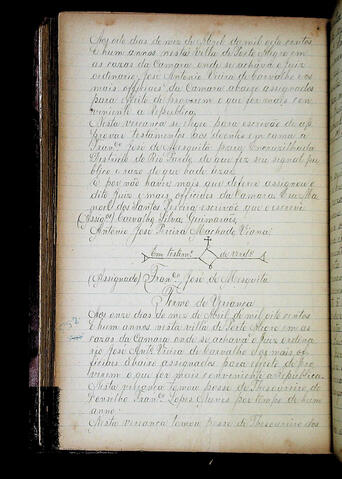 Aos oito dias do mez de Abril de mil oito centos
e hum annos nesta Villa de Porto Alegre em
as cazas da Camara onde se achava o Juiz
ordinario José Antonio Vieira de Carvalho e os
mais officiaes da Camara abaixo assignados
para effeito de proverem o que for mais con
veniente a Republica
Nesta vereança se elegeu para escrivão de ap
provar testamentos aos doentes em cama a
Franco José de Mesquita para Encruzilhada
Districto do Rio Pardo de que fez seu signal pu
blico e razo de que hade uzar
E por não haver mais que deferir assignou o
dito Juiz e mais officiaes da Camara Eu Ma
noel dos Santos escrivão que o escrevi
(Assigos) Carvalho Silva Guimarães
Antonio José Pereira Machado Viana
Em testemo de verde
(Assignado) Franco José de Mesquita
Termo de Vereança
252
Aos onze dias do mez de Abril de mil oito centos
e hum annos nesta villa de Porto Alegre em as
cazas da Camara onde se achava o Juiz ordena
rio José Anto Vieira de Carvalho e os mais of-
ficiaes abaixo assignados para effeito de pro
verem o que for mais conveniente a Republica
Nesta vereança tomou posse de Thesoureiro do
Conselho Franco Lopes por tempo de hum
anno
Nesta vereança tomou posse de Thesoureiro dos